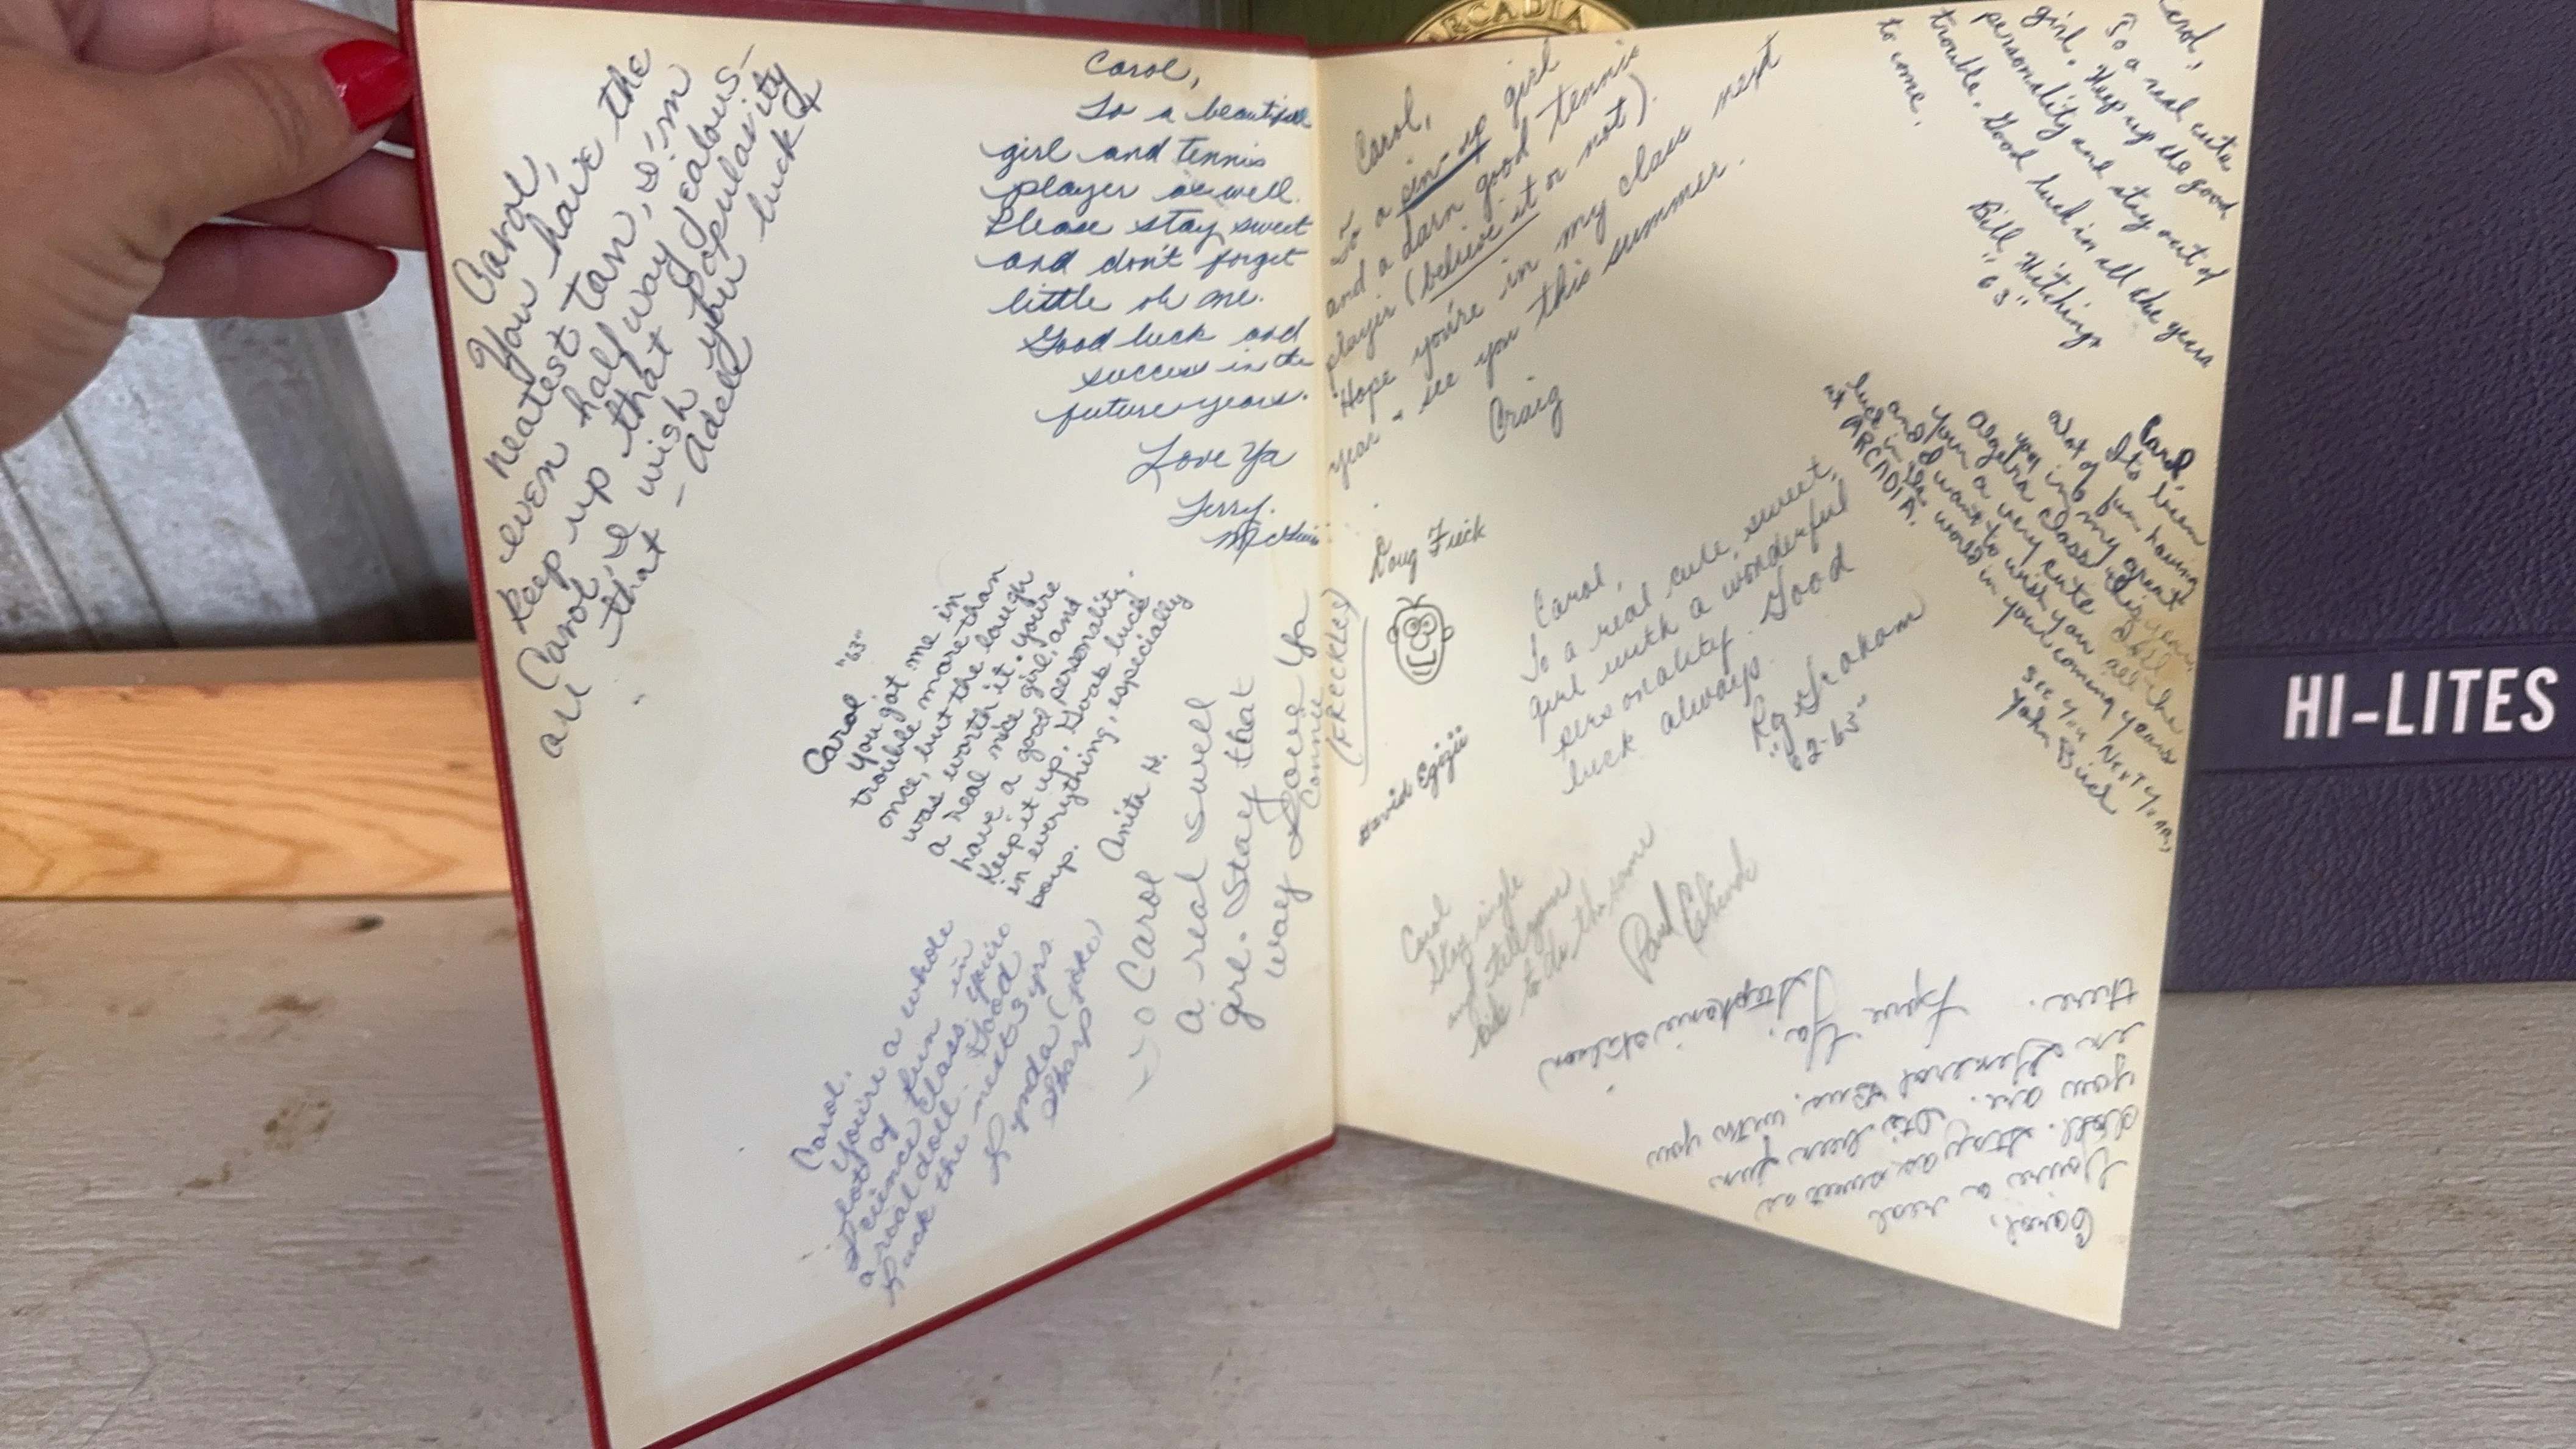 Carol,
You have the
neatest tan, I'm
even half way jealous-
Keep up that popularity
Carol, I wish you luck &
all that - Adell
Carol,
To a beautiful
girl and tennis
player as well.
Please stay sweet
and don't forget
little ol me.
Good luck and
success in the
future years.
Love Ya
Terry
Carol "63"
you got me in
trouble more than
once, but the laugh
was worth it. You're
a real nice girl, and
have a good personality.
Keep it up. Good luck
in everything, especially
boys.
Anita H.
Carol,
You're a whole
lot of fun in
Science class. You're
a real doll. Good
Luck the next 3 yrs.
Lynda (joke)
Sharp
To Carol
a real swell
girl. Stay that
way
Love Ya
Connie
(FRECKLES)
ARCADIA
Carol,
To a pin-up girl
and a darn good tennis
player (believe it or not).
Hope you're in my class next
year - see you this summer.
Craig
Carol,
To a real cute
girl. Keep up the good
personality and stay out of
trouble. Good luck in all the years
to come.
Bill
"63"
Carol,
Its been
alot of fun having
you in my great
Algebra class this year.
Your a very cute
and I want to wish you all the
luck in the world in your coming years
at ARCADIA.
See you NEXT YEAR,
John Bird
Doug
Carol,
To a real cute, sweet,
girl with a wonderful
personality. Good
luck always.
Graham
"62-63"
David
Carol
Stay single
and tell your
to do the same
Paul
Carol,
You're a real
doll. Stay as sweet as
you are. It's been fun
in General Bus. with you
there.
Love Ya,
Stephanie
HI-LITES